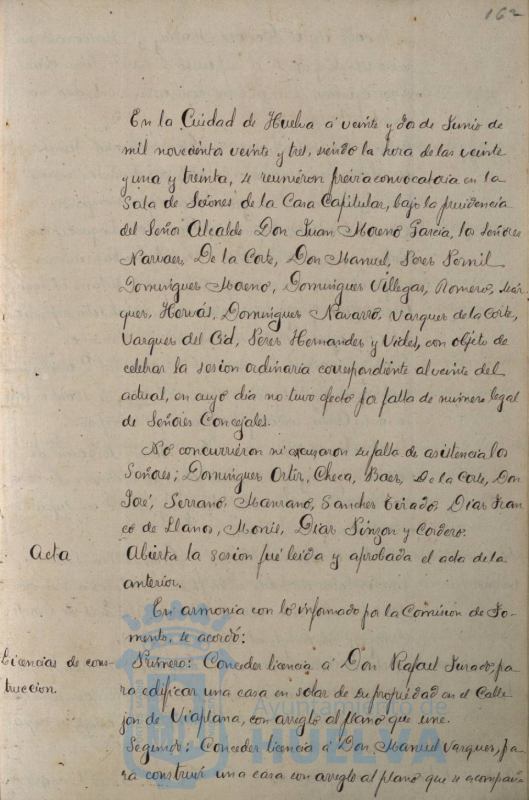 162
En la Cuidad de Huelva á veinte y dos de Junio de
mil novecientos veinte y tres, siendo la hora de las veinte
y una y treinta, se reuniéron previa convocatoria en la
Sala de Sesiones de la Casa Capitular, bajo la presidencia
del Señor Alcalde Don Juan Moreno García, los señores
Narvaes, De la Corte, Don Manuel, Peres
Domingues Moreno, Domingues Villegas, Romero, Már-
ques, Hervás, Domingues Navarro, Vasques de la Corte,
Vasques del Cid, Peres Hernandes y Vides, con objeto de
celebrar la sesion ordinaria correspondiente al veinte del
actual, en cuyo dia no tuvo efecto por falta de numero legal
de Señores Concejales.
No concurriéron ni excusaron su falta de asistencia los
Señores; Domingues Ortiz, Checa, Baes, De la Corte, Don
José, Serrano, Manzano, Sanches Tirado, Dias Fran-
co de Llanos, Monis, Dias Pinzon y Cordero.
Acta Abierta la sesion fué leida y aprobada el acta de la
anterior.
En armonía con lo informado por la Comision de Fo-
mento, se acordó:
Licencias de cons- Primero: Conceder licencia á Don Rafael Jurado, pa-
truccion. ra edificar una casa en solar de su propiedad en el Calle-
jon de Viaplana, con arreglo al plano que une.
Segundo: Conceder licencia á Don Manuel Vasques, pa-
ra construir una casa con arreglo al plano que se acompaña
Ayuntamiento de
HUELVA